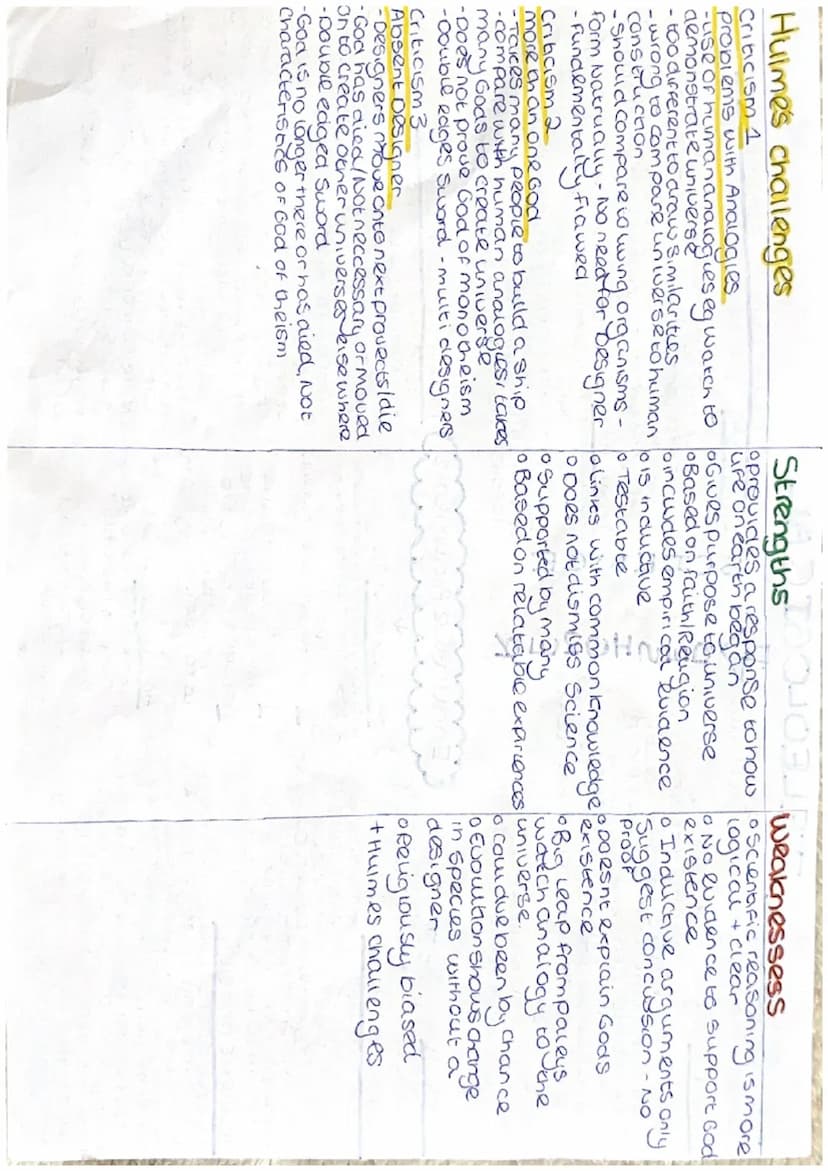 Hulmes challenges
Criticism 1
problems with Analogies
- use of human analogies eg watch to
demonstrate universe
- too different to draw similarities
- wrong to compare universe to human
construction
- should compare to living organisms -
form Natrually - No need for Designer
- Fundementally flawed
Criticism 2
more than one God
- Takes many people to build a ship
- compare with human analogies, takes
many Gods to create universe
- Does not prove God of monotheism
- Double edges sword - multi designers
Criticism 3
Absent Designer
- Designers move onto next provects/die
- God has died/Not neccessary or moved
on to create other universes elsewhere
- Double edged sword
- God is no longer there or has died, Not
characteristics of God of theism
Strengths
o provides a response to how
life on earth began
o Gives purpose to universe
o Based on faith/Religion
o includes empirical evidence
o is inductive
o Testable
o Links with common knowledge
o Does not dismiss Science
o Supported by many
o Based on relatable experiences
weaknessess
o scientific reasoning is more
logical + clear
o No evidence to support God
existence
o Inductive arguments only
suggest conclusion - No
proof
o Doesnt explain Gods
existence
o Big leap from paleys
watch analogy to the
universe.
o could've been by chance
o Evolution shows change
in species without a
designer
o Religiously biased
+ Hulmes challenges